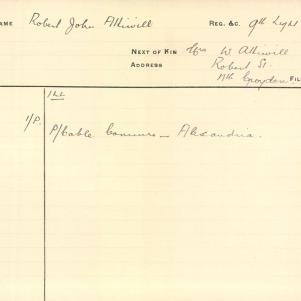 NAME Robert John Attiwill REG. &C. 9th Light
NEXT OF KIN Mrs W. Attiwill
ADDRESS Robert St.
Nth Croydon FIL
1/P. P/Cable Commre — Alexandria.